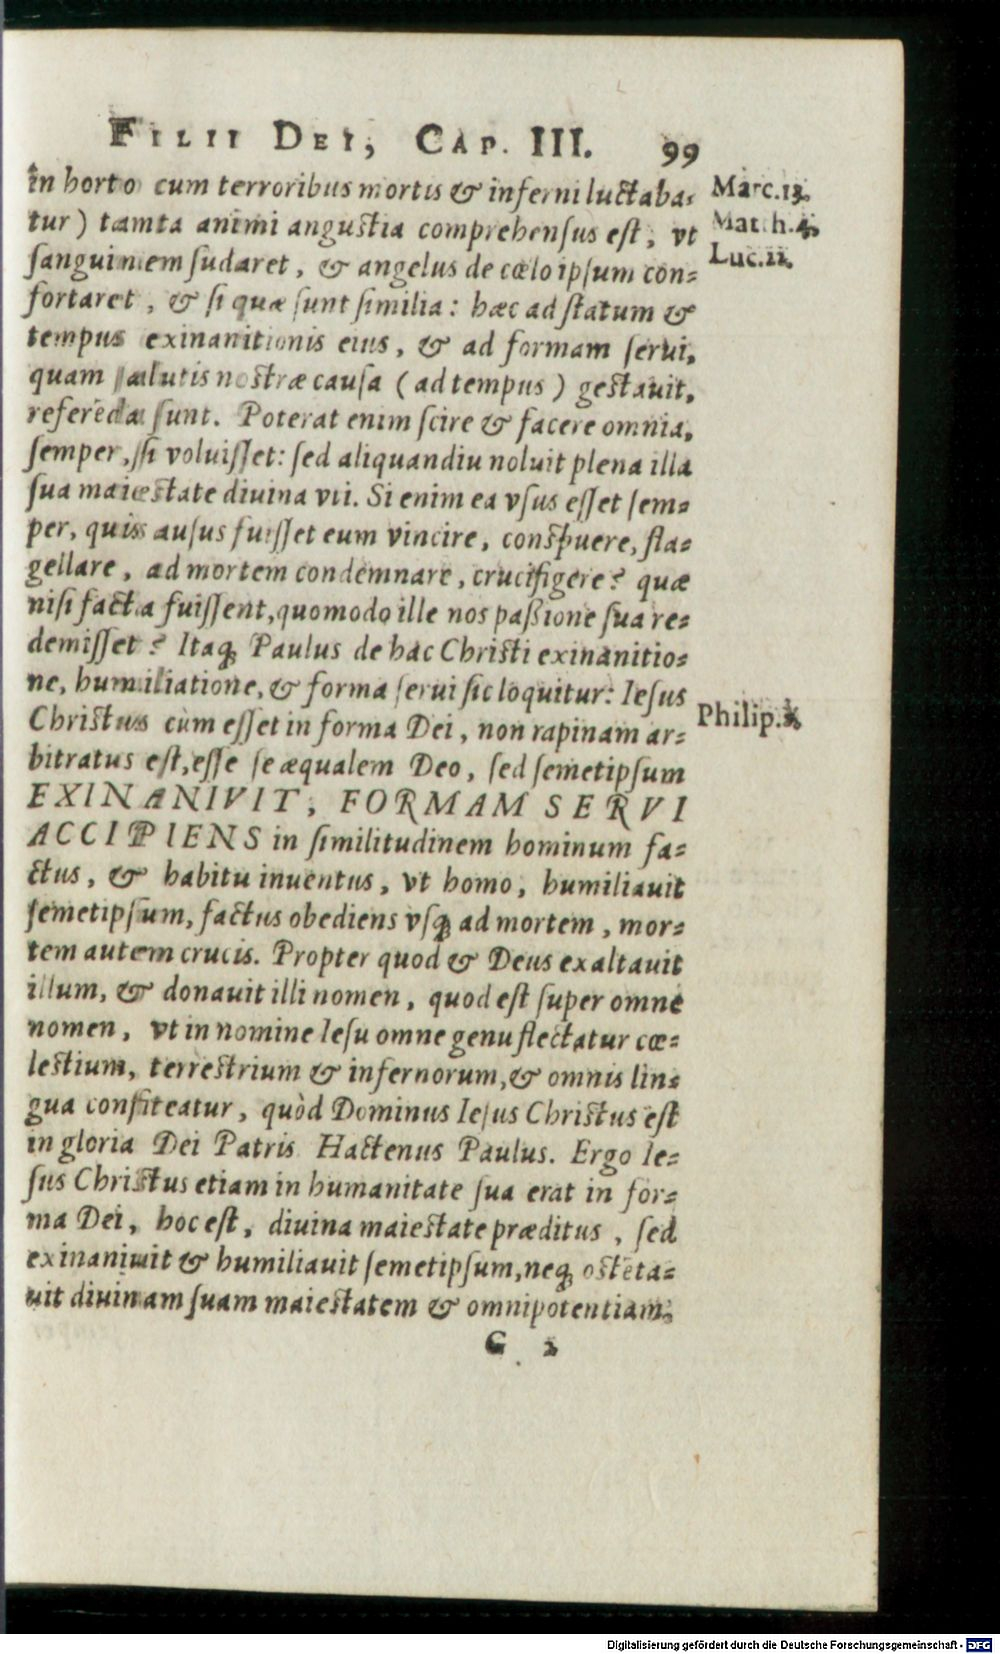 FILII DEI, CAP. III. 99
in horto cum terroribus mortis & inferni luctaba-
tur) tamta animi angustia comprehensus est, vt
sanguinem sudaret, & angelus de cœlo ipsum con-
fortaret, & si quæ sunt similia: hæc ad statum &
tempus exinanitionis eius, & ad formam serui,
quam salutis nostræ causa (ad tempus) gestauit,
referēda sunt. Poterat enim scire & facere omnia,
semper, si voluisset: sed aliquandiu noluit plena illa
sua maiestate diuina vti. Si enim ea vsus esset sem-
per, quis ausus fuisset eum vincire, conspuere, fla-
gellare, ad mortem condemnare, crucifigere? quæ
nisi facta fuissent, quomodo ille nos paßione sua re-
demisset? Itaq; Paulus de hac Christi exinanitio-
ne, humiliatione, & forma serui sic loquitur: Iesus
Christus cùm esset in forma Dei, non rapinam ar-
bitratus est, esse se æqualem Deo, sed semetipsum
EXINANIVIT, FORMAM SERVI
ACCIPIENS in similitudinem hominum fa-
ctus, & habitu inuentus, vt homo, humiliauit
semetipsum, factus obediens vsq; ad mortem, mor-
tem autem crucis. Propter quod & Deus exaltauit
illum, & donauit illi nomen, quod est super omne
nomen, vt in nomine Iesu omne genu flectatur cœ-
lestium, terrestrium & infernorum, & omnis lin-
gua confiteatur, quòd Dominus Iesus Christus est
in gloria Dei Patris Hactenus Paulus. Ergo Ie-
sus Christus etiam in humanitate sua erat in for-
ma Dei, hoc est, diuina maiestate præditus, sed
exinaniuit & humiliauit semetipsum, neq; ostēta-
uit diuinam suam maiestatem & omnipotentiam,
G 2
Marc.13.
Matth.4.
Luc.22.
Philip.2.
Digitalisierung gefördert durch die Deutsche Forschungsgemeinschaft - DFG